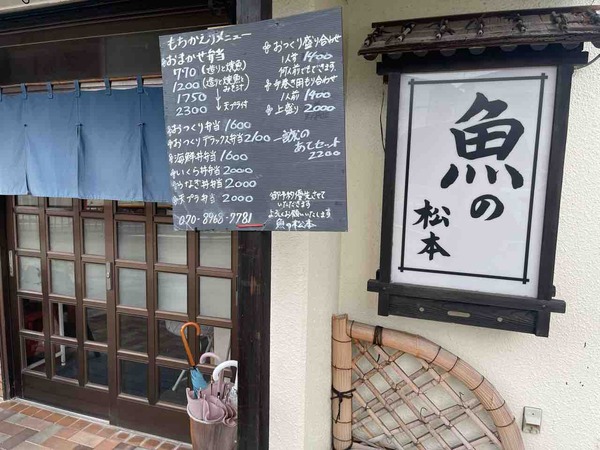 もちかえりメニュー
おまかせ弁当
770 (造りと焼魚)
1200 (造りと焼魚とみそ汁)
1750
↓ 天プラ付
2300
おつくり弁当 1600
おつくりデラックス弁当 2100
海鮮丼弁当 1600
いくら弁当 2000
うなぎ丼弁当 2000
天プラ弁当 2000
070-8968-7781
おつくり盛り合わせ
1人前 1400
何人前でもできます
手巻き用もり合わせ
1人前 1900
上盛り 2000
あてセット
2200
御予約優先させて
いただきます
よろしくお願いいたします
魚の松本
魚の
松本